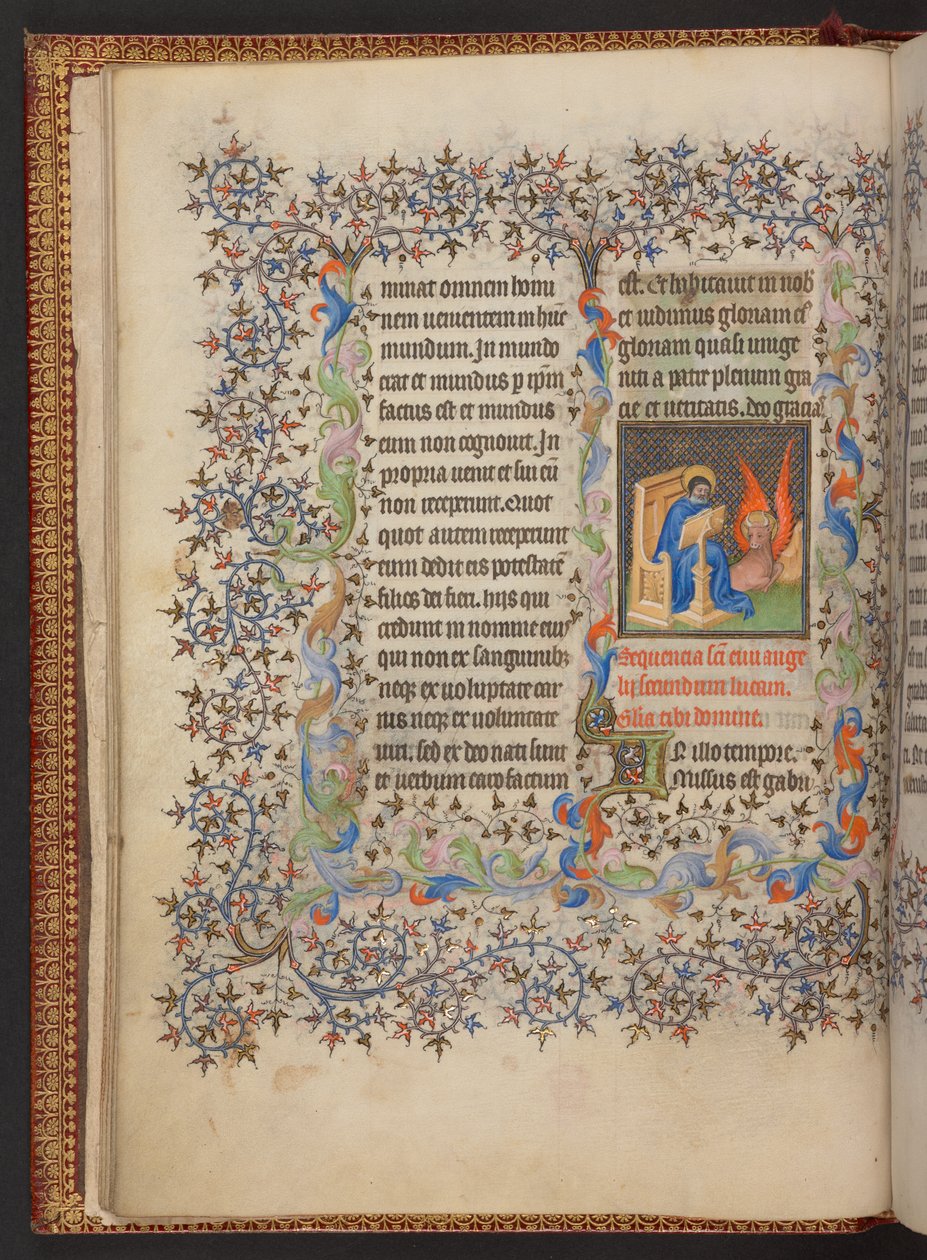 minat omnem homi
nem uenientem in huc
mundum. In mundo
erat et mundus p ip̄m
factus est et mundus
eum non cognouit. In
propria uenit et sui eū
non receperunt. Quot
quot autem receperunt
eum dedit eis potestatē
filios dei fieri. hijs qui
credunt in nomine eiuꝰ
qui non ex sanguinibꝫ
neqꝫ ex uoluptate car
nis neqꝫ ex uoluntate
uiri. sed ex deo nati sunt
et uerbum caro factum
est. Et habitauit in nob
et uidimus gloriam eꝰ
gloriam quasi unige
niti a patre plenum gra
cie et ueritatis. Deo gracias
Sequencia sc̄i euuange
lij secundum lucam.
Gl̄ia tibi domine.
IN illo tempore.
Missus est gabri